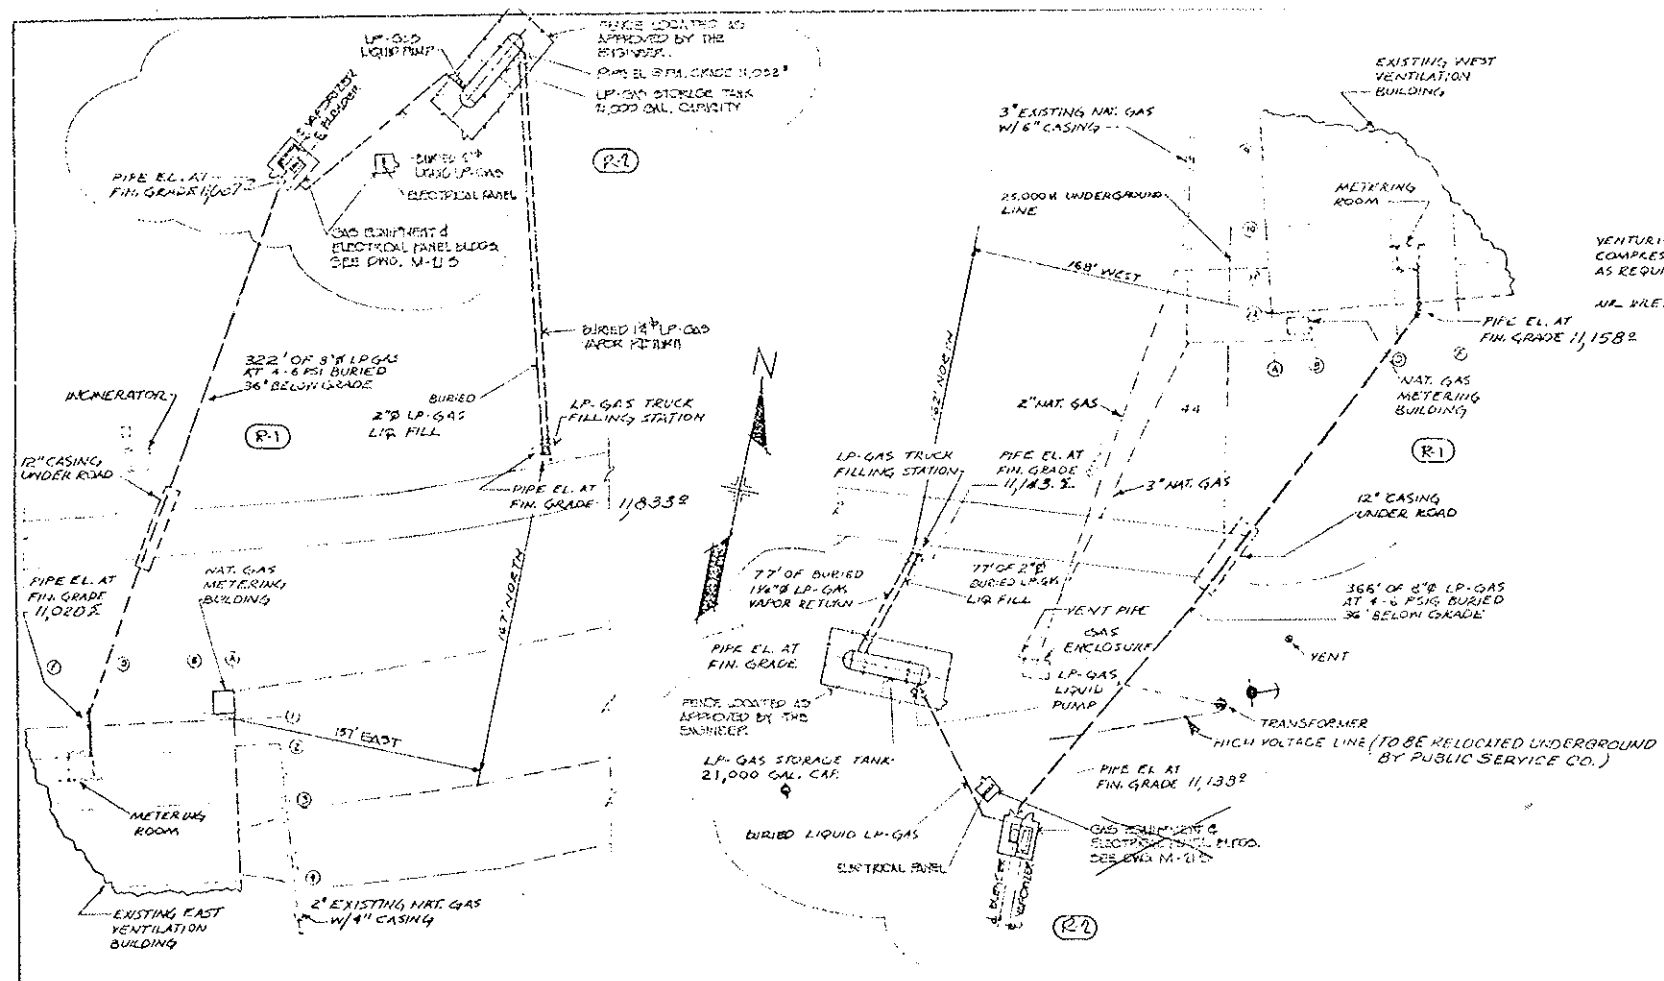 LP-GAS
LIQUID PUMP
FENCE LOCATED AS
APPROVED BY THE
ENGINEER.
PIPE EL @ FIN. GRADE
LP-GAS STORAGE TANK
GAL. CAPACITY
R-2
VAPORIZER
BLENDER
PIPE EL. AT
FIN. GRADE
BURIED
LIQUID LP-GAS
ELECTRICAL PANEL
GAS EQUIPMENT &
ELECTRICAL PANEL BLDGS.
SEE DWG. M-215
BURIED LP-GAS
VAPOR RETURN
322' OF 8"Ø LP GAS
AT 4-6 PSI BURIED
36" BELOW GRADE
INCINERATOR
R-1
BURIED
2"Ø LP-GAS
LIQ FILL
LP-GAS TRUCK
FILLING STATION
12" CASING
UNDER ROAD
PIPE EL. AT
FIN. GRADE 11,833º
PIPE EL. AT
FIN. GRADE
11,020
NAT. GAS
METERING
BUILDING
147' NORTH
151' EAST
1
2
3
4
METERING
ROOM
EXISTING EAST
VENTILATION
BUILDING
2" EXISTING NAT. GAS
W/4" CASING
N
EXISTING WEST
VENTILATION
BUILDING
3" EXISTING NAT. GAS
W/6" CASING
METERING
ROOM
25,000 V UNDERGROUND
LINE
168' WEST
162' NORTH
VENTURI
COMPRES
AS REQUI
PIPE EL. AT
FIN. GRADE 11,158º
A
B
D
NAT. GAS
METERING
BUILDING
2" NAT. GAS
44
R-1
LP-GAS TRUCK
FILLING STATION
PIPE EL. AT
FIN. GRADE
3" NAT. GAS
12" CASING
UNDER ROAD
77' OF BURIED
1¼"Ø LP-GAS
VAPOR RETURN
77' OF 2"Ø
BURIED LP-GAS
LIQ FILL
VENT PIPE
GAS
ENCLOSURE
366' OF 8"Ø LP-GAS
AT 4-6 PSIG BURIED
36" BELOW GRADE
VENT
PIPE EL. AT
FIN. GRADE
LP-GAS
LIQUID
PUMP
FENCE LOCATED AS
APPROVED BY THE
ENGINEER
TRANSFORMER
HIGH VOLTAGE LINE (TO BE RELOCATED UNDERGROUND
BY PUBLIC SERVICE CO.)
LP-GAS STORAGE TANK
21,000 GAL. CAP.
PIPE EL AT
FIN. GRADE 11,138º
BURIED LIQUID LP-GAS
ELECTRICAL PANEL
GAS EQUIPMENT &
ELECTRICAL PANEL BLDGS.
SEE DWG M-215
BLENDER
VAPORIZER
R-2